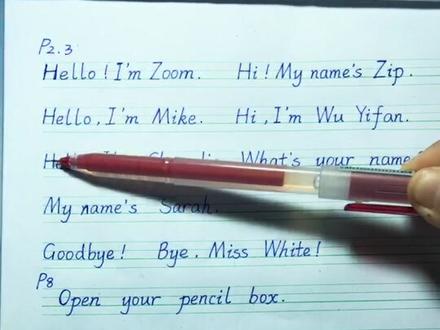 P2.3
Hello! I'm Zoom. Hi! My name's Zip.
Hello, I'm Mike. Hi, I'm Wu Yifan.
What's your name?
My name's Sarah.
Goodbye! Bye, Miss White!
P8
Open your pencil box.